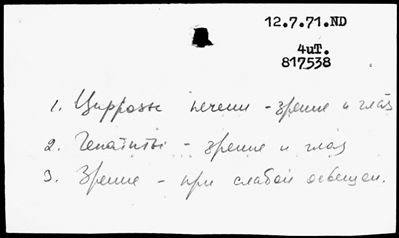 12.7.71.ND
4иT.
817538
1. Циррозы печени - зрение и глаз
2. Гепатиты - зрение и глаз
3. Зрение - при слабой освещен.